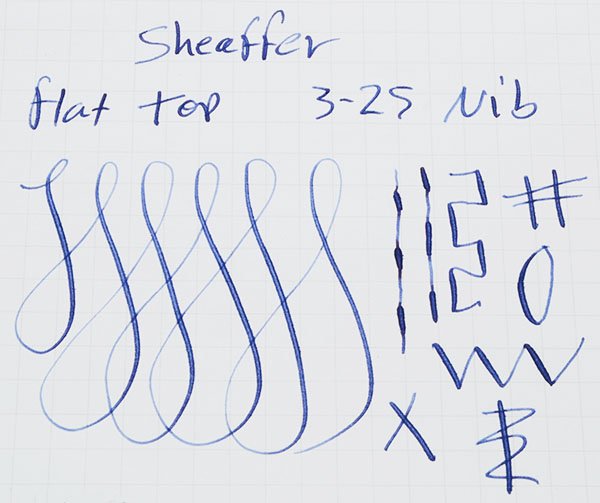 Sheaffer
flat top 3-25 Nib